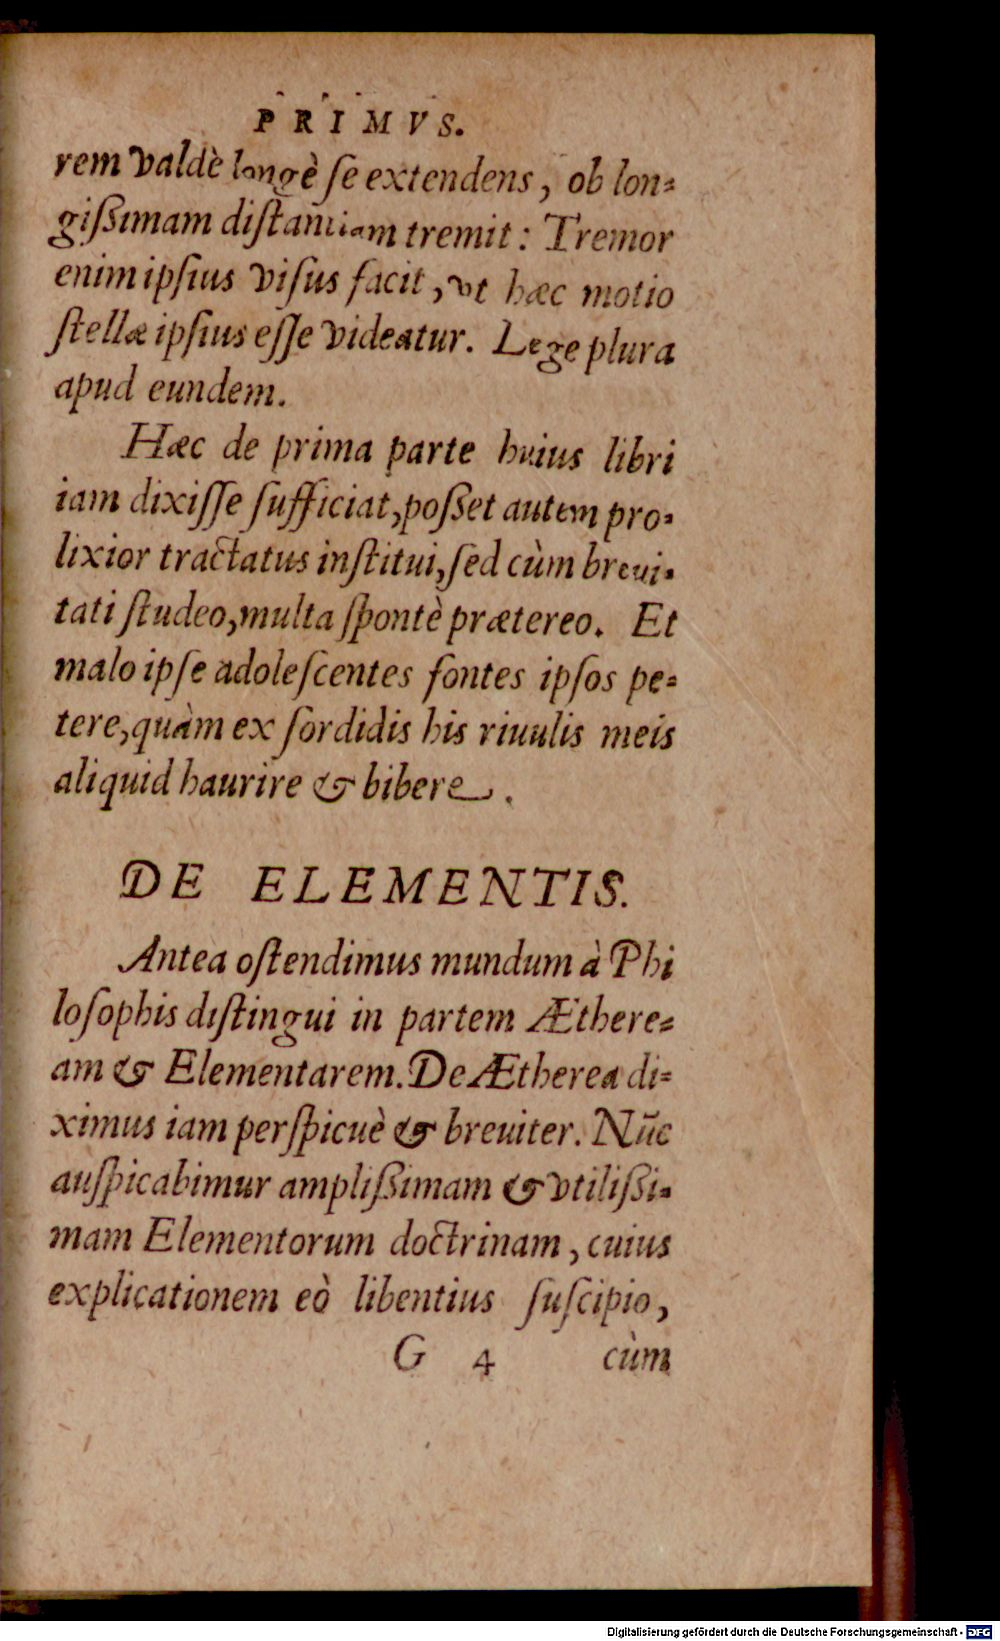 PRIMVS.
rem valdè longè ſe extendens, ob lon-
gißimam diſtantiam tremit: Tremor
enim ipſius viſus facit, vt hæc motio
ſtellæ ipſius eſſe videatur. Lege plura
apud eundem.
Hæc de prima parte huius libri
iam dixiſſe ſufficiat, poßet autem pro-
lixior tractatus inſtitui, ſed cùm breui-
tati ſtudeo, multa ſpontè prætereo. Et
malo ipſe adoleſcentes fontes ipſos pe-
tere, quàm ex ſordidis his riuulis meis
aliquid haurire & bibere.
DE ELEMENTIS.
Antea oſtendimus mundum à Phi
loſophis diſtingui in partem Æthere-
am & Elementarem. De Ætherea di-
ximus iam perſpicuè & breuiter. Nũc
auſpicabimur amplißimam & vtilißi-
mam Elementorum doctrinam, cuius
explicationem eò libentius ſuſcipio,
G 4 cùm
Digitalisierung gefördert durch die Deutsche Forschungsgemeinschaft - DFG